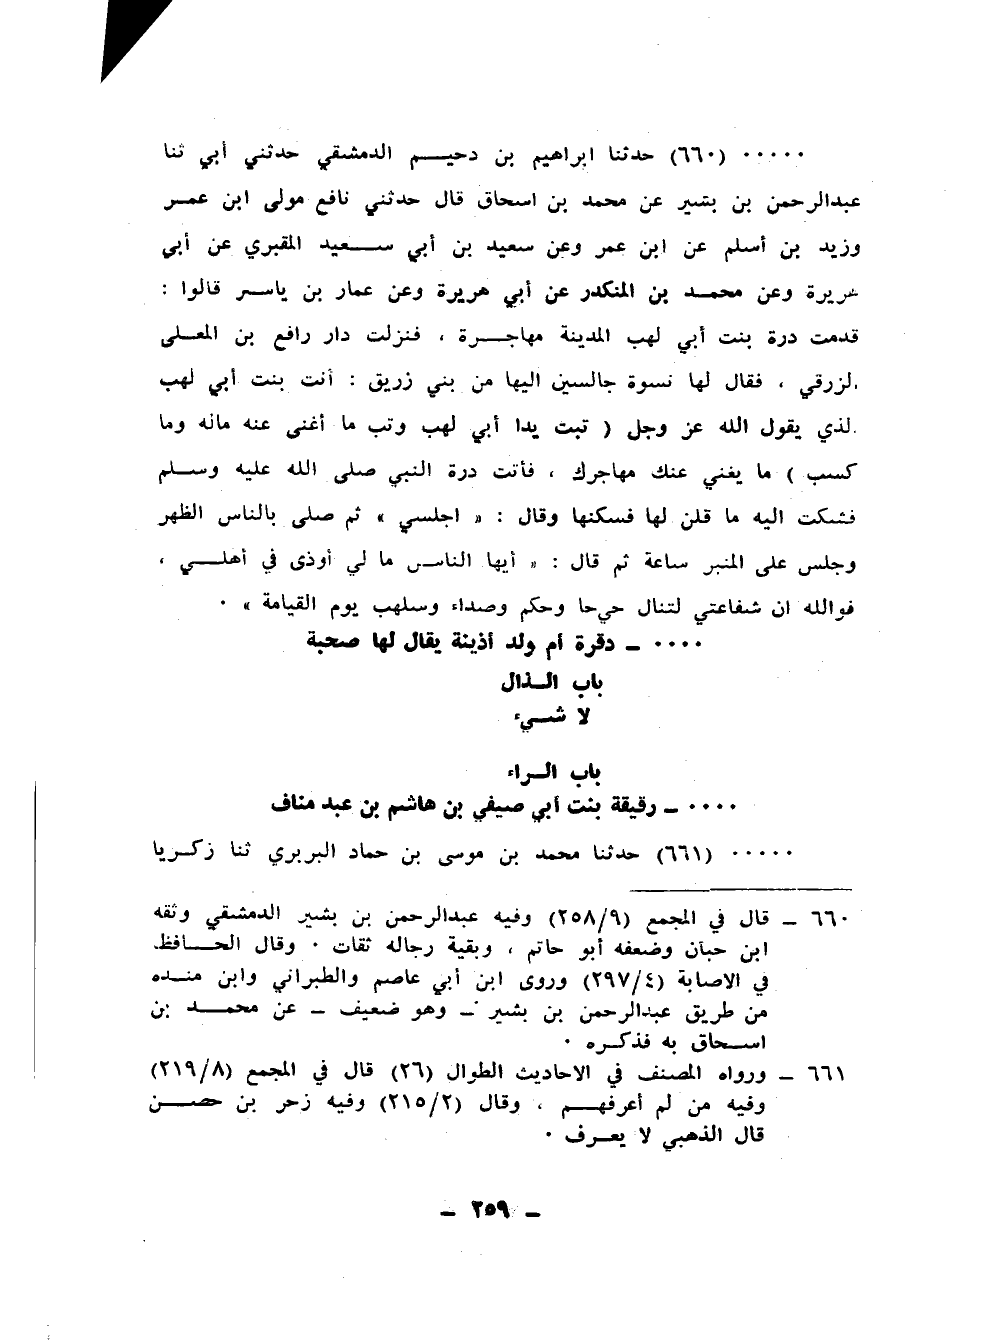 ..... (٦٦٠) حدثنا ابراهيم بن دحيم الدمشقي حدثني أبي ثنا
عبدالرحمن بن بشير عن محمد بن اسحاق قال حدثني نافع مولى ابن عمر
وزيد بن أسلم عن ابن عمر وعن سعيد بن أبي سعيد المقبري عن أبي
هريرة وعن محمد بن المنكدر عن أبي هريرة وعن عمار بن ياسر قالوا :
قدمت درة بنت أبي لهب المدينة مهاجرة ، فنزلت دار رافع بن المعلى
الزرقي ، فقال لها نسوة جالسين اليها من بني زريق : أنت بنت أبي لهب
الذي يقول الله عز وجل ( تبت يدا أبي لهب وتب ما أغنى عنه ماله وما
كسب ) ما يغني عنك مهاجرك ، فأتت درة النبي صلى الله عليه وسلم
فشكت اليه ما قلن لها فسكنها وقال : « اجلسي » ثم صلى بالناس الظهر
وجلس على المنبر ساعة ثم قال : « أيها الناس ما لي أوذى في أهلي ،
فوالله ان شفاعتي لتنال حي حا وحكم وصداء وسلهب يوم القيامة » .
.... ـ دقرة أم ولد أذينة يقال لها صحبة
باب الذال
لا شيء
باب الراء
.... ـ رقيقة بنت أبي صيفي بن هاشم بن عبد مناف
..... (٦٦١) حدثنا محمد بن موسى بن حماد البربري ثنا زكريا
٦٦٠ ـ قال في المجمع (٢٥٨/٩) وفيه عبدالرحمن بن بشير الدمشقي وثقه
ابن حبان وضعفه أبو حاتم ، وبقية رجاله ثقات . وقال الحافظ
في الاصابة (٢٩٧/٤) وروى ابن أبي عاصم والطبراني وابن منده
من طريق عبدالرحمن بن بشير ـ وهو ضعيف ـ عن محمد بن
اسحاق به فذكره .
٦٦١ ـ ورواه المصنف في الاحاديث الطوال (٢٦) قال في المجمع (٢١٩/٨)
وفيه من لم أعرفهم ، وقال (٢١٥/٢) وفيه زحر بن حصن
قال الذهبي لا يعرف .
ـ ٢٥٩ ـ